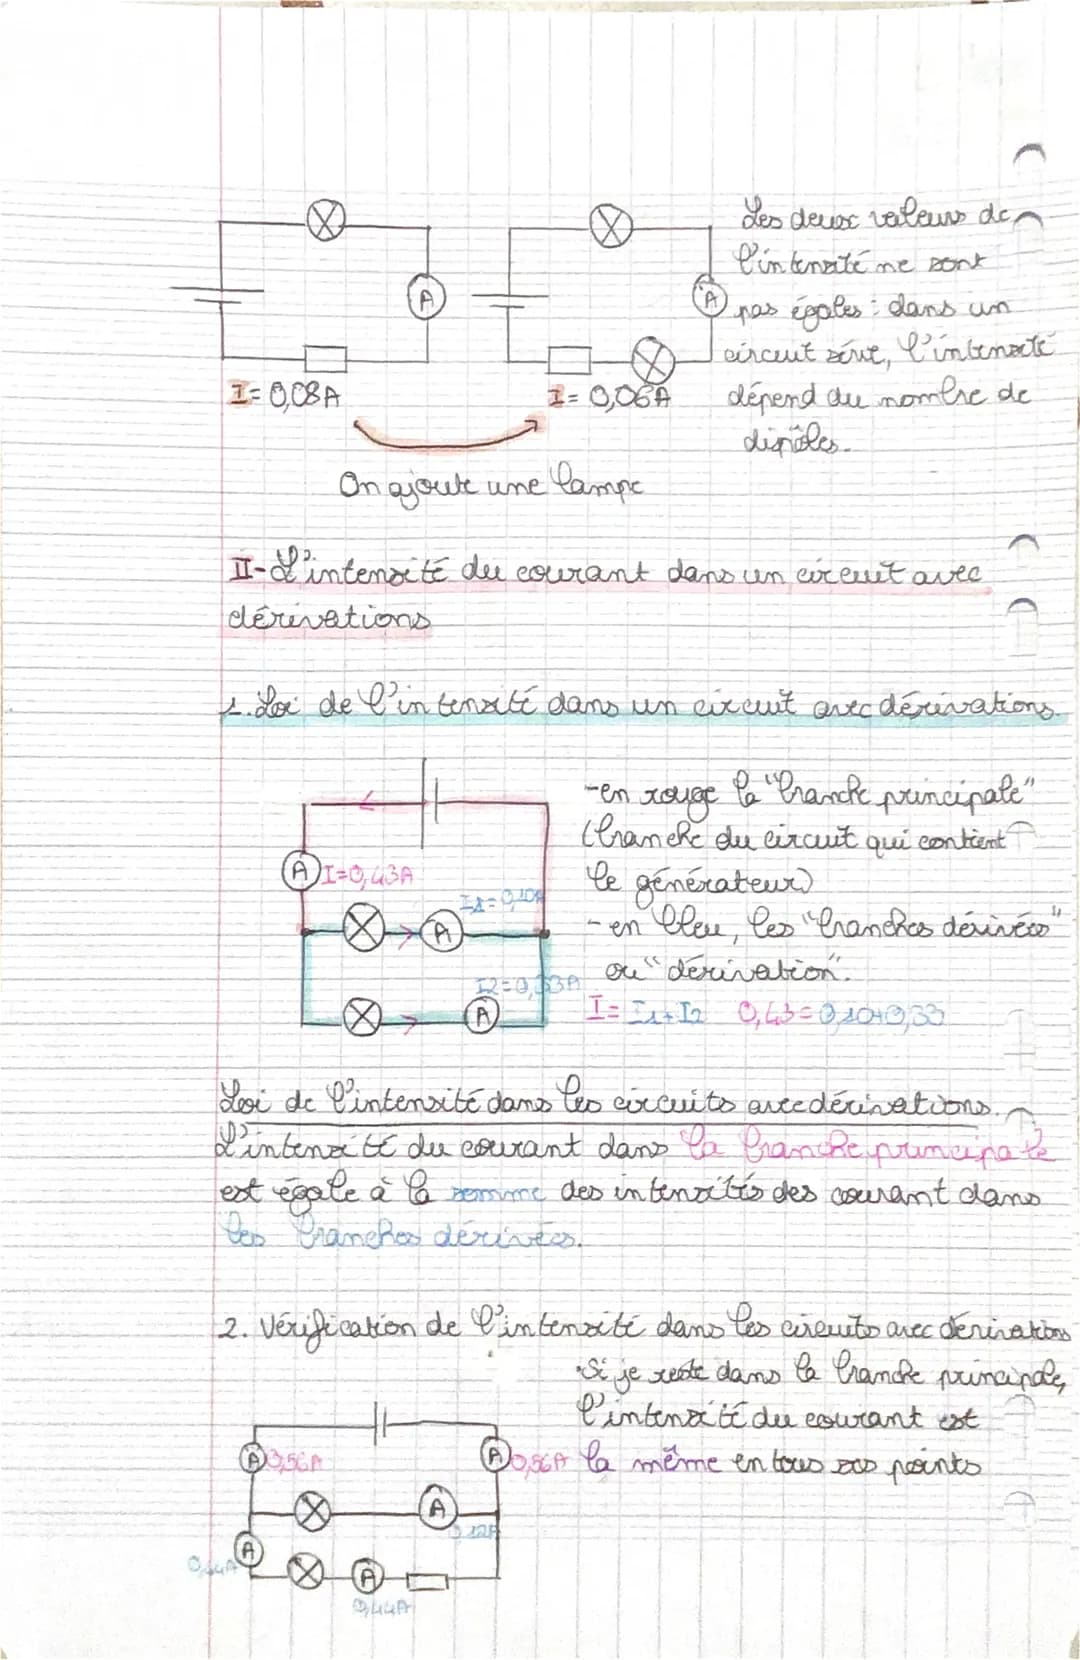 Les deux valeurs de
l'intensité ne sont
pas égales : dans un
circuit série, l'intensité
dépend du nombre de
dipôles.
A
A
I = 0,08A
I = 0,06A
On ajoute une lampe
II-L'intensité du courant dans un circuit avec
dérivations
1. Loi de l'intensité dans un circuit avec dérivations.
-en rouge la "branche principale"
(branche du circuit qui contient
le générateur)
- en bleu, les "branches dérivées"
ou "dérivation".
I = I1 + I2 0,43 = 0,10+0,33
A I=0,43A
I1 = 0,10A
A
I2 = 0,33A
A
Loi de l'intensité dans les circuits avec dérivations.
L'intensité du courant dans la branche principale
est égale à la somme des intensités des courant dans
les branches dérivées.
2. Vérification de l'intensité dans les circuits avec dérivations
•Si je reste dans la branche principale,
l'intensité du courant est
la même en tous ses points
A
A 0,56A
A
0,12A
A
0,44A
A
0,44A